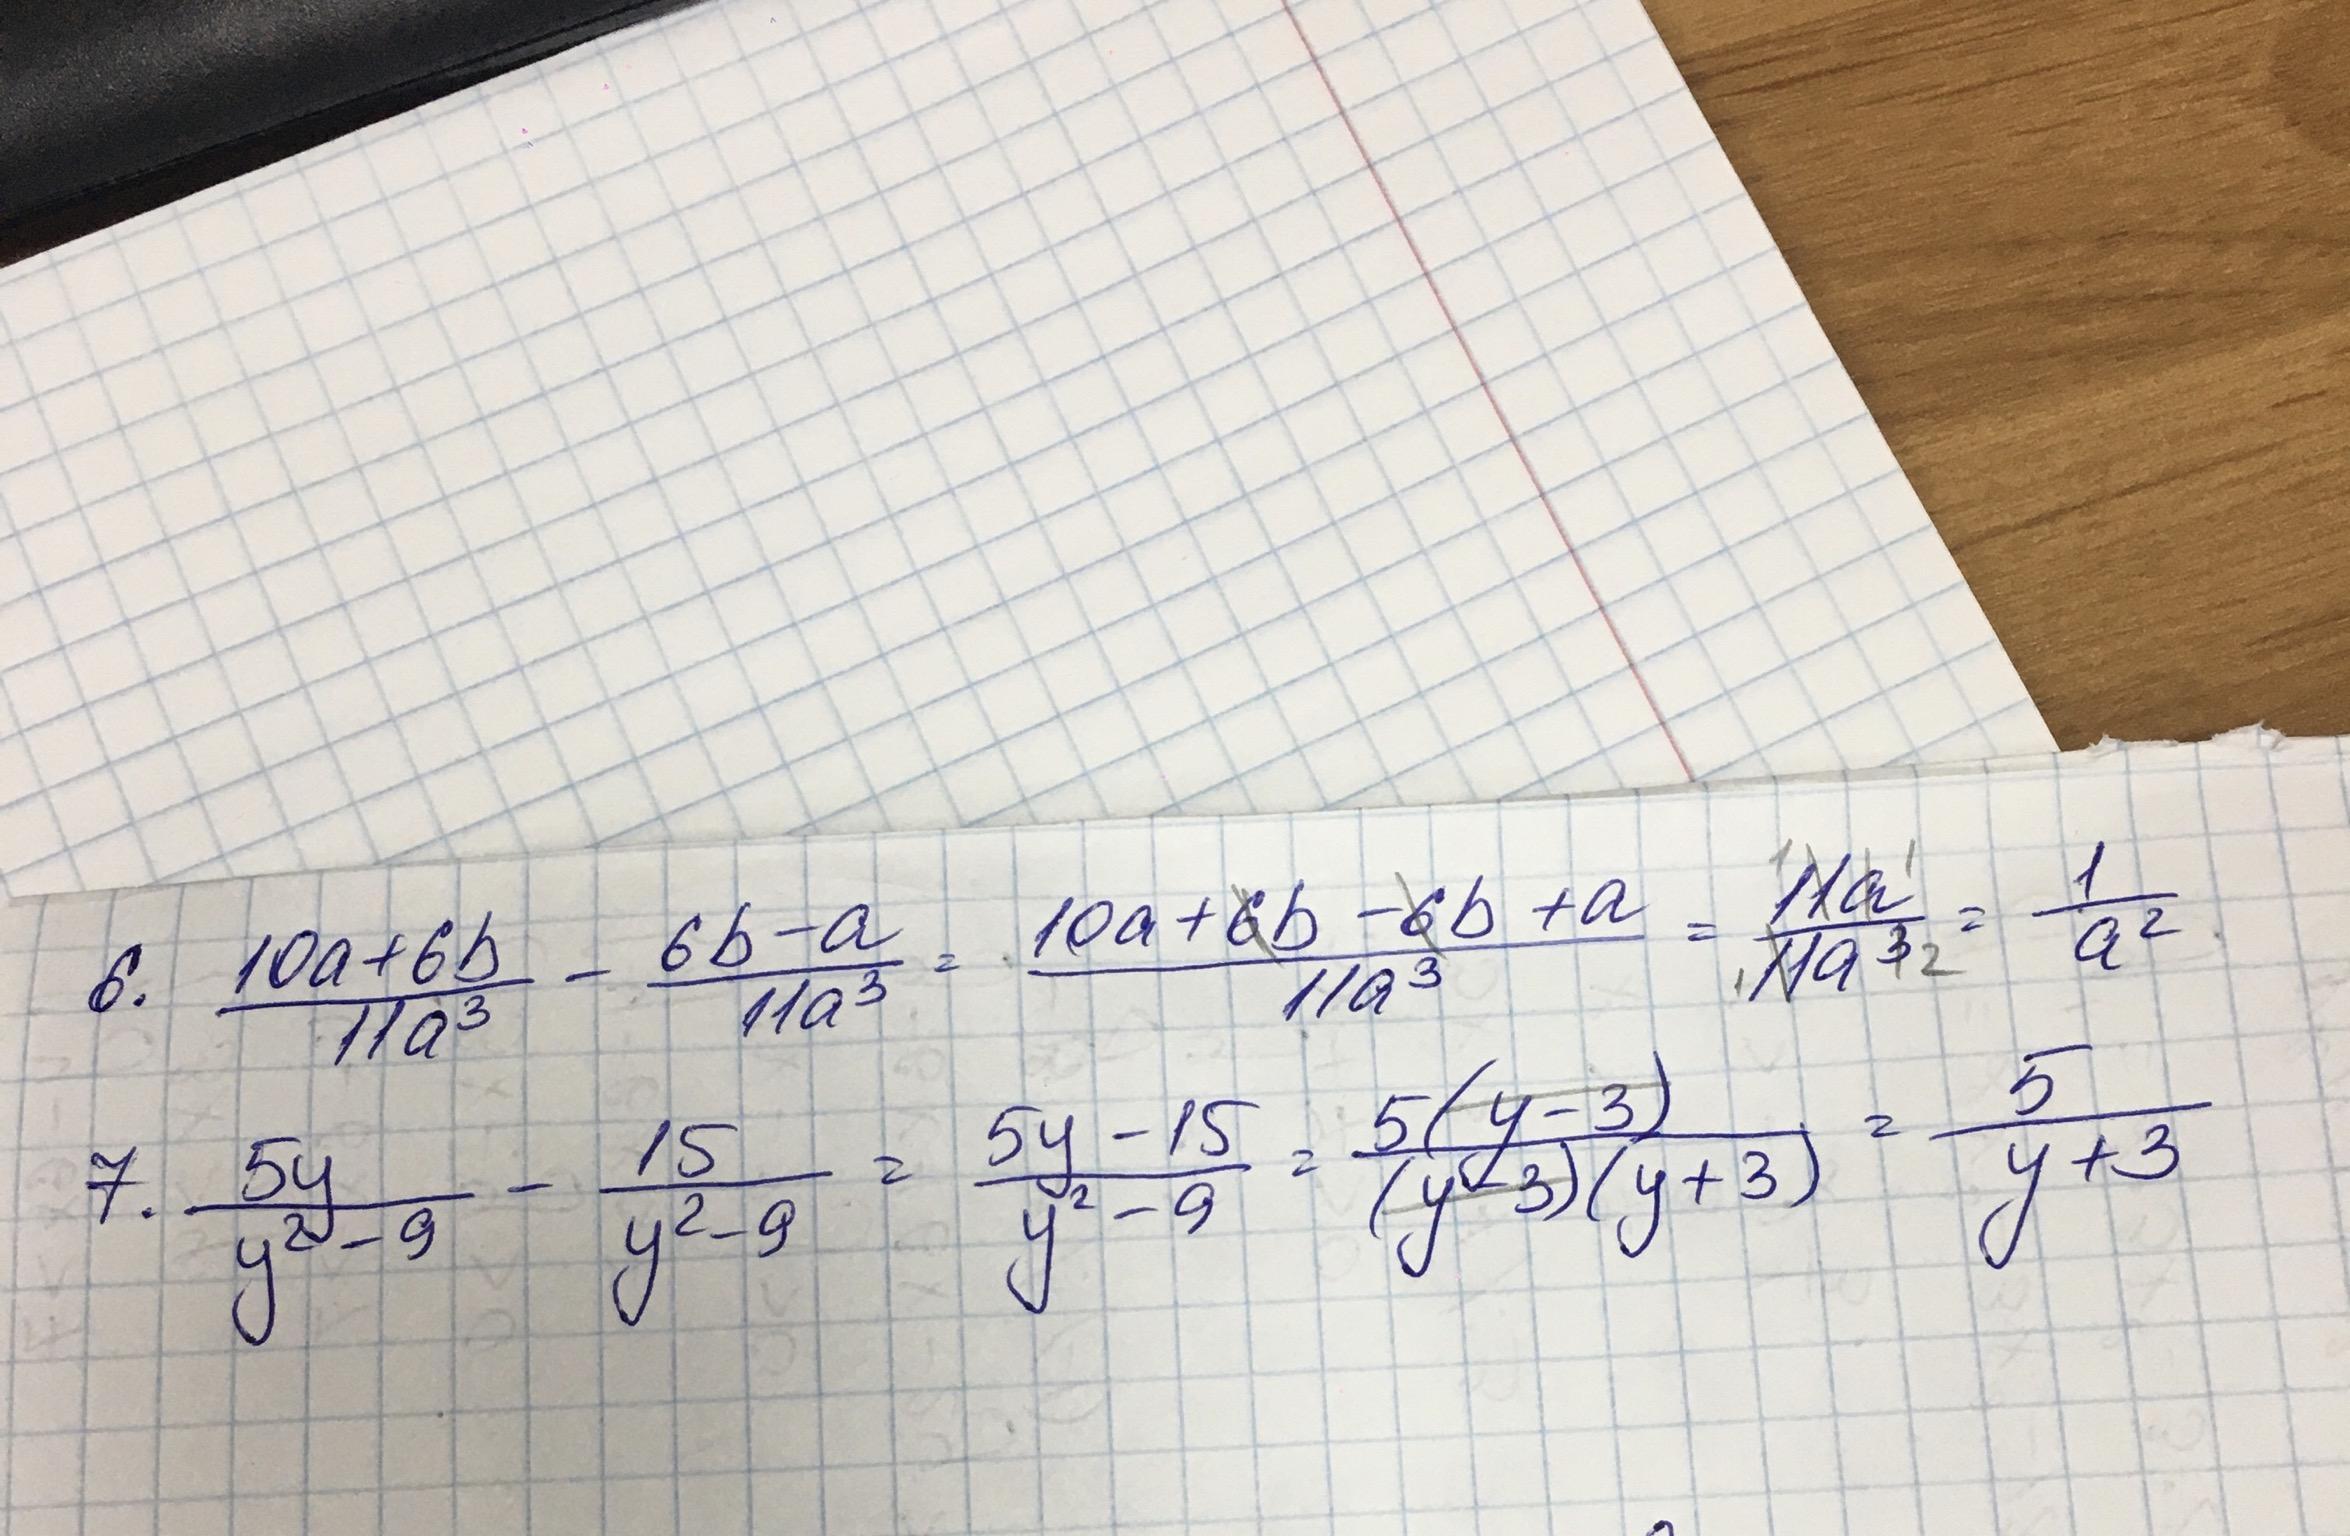 6. \frac{10a+6b}{11a^3} - \frac{6b-a}{11a^3} = \frac{10a+6b-6b+a}{11a^3} = \frac{11a}{11a^3} = \frac{1}{a^2}
7. \frac{5y}{y^2-9} - \frac{15}{y^2-9} = \frac{5y-15}{y^2-9} = \frac{5(y-3)}{(y-3)(y+3)} = \frac{5}{y+3}